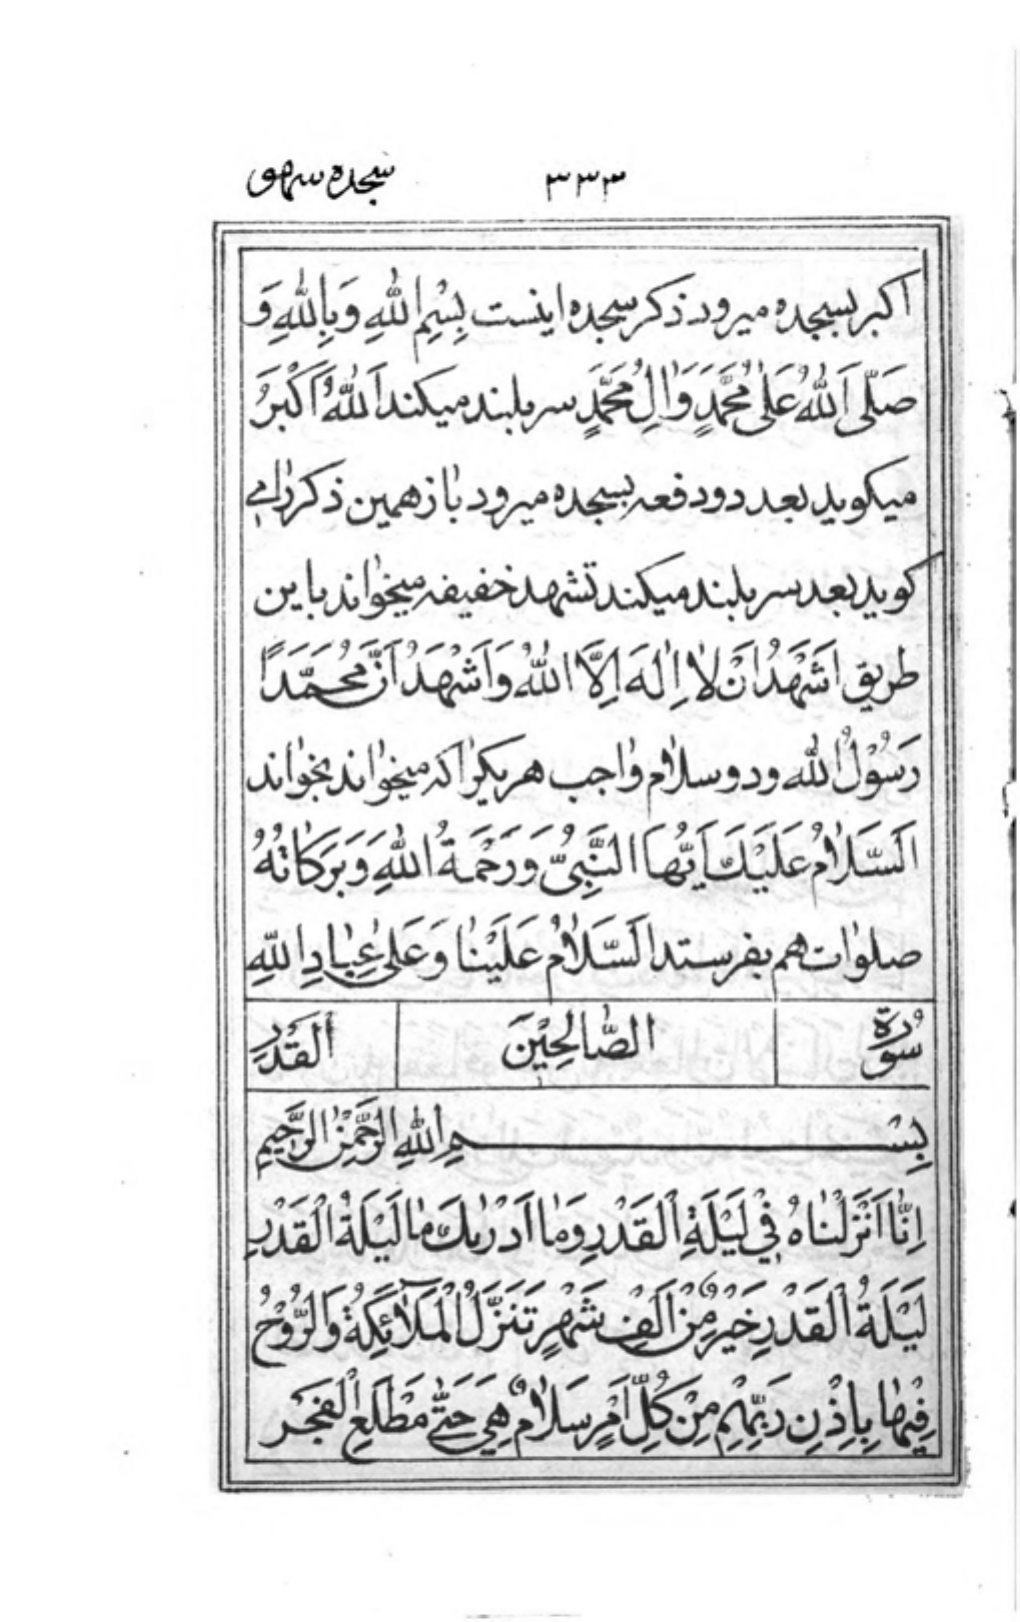 ٣٣٣ سجده سهو
اکبر بسجده میرود ذکر سجده اینست بِسْمِ اللهِ وَبِاللهِ وَ
صَلَّی اَللهُ عَلٰی مُحَمَّدٍ وَاٰلِ مُحَمَّدٍ سر بلند میکند اَللهُ اَکْبَرُ
میکوید بعد دو دفعه بسجده میرود باز همین ذکر را مے
کوید بعد سر بلند میکند تشهد خفیفه میخواند باین
طریق اَشْهَدُ اَنْ لٰا اِلٰهَ اِلَّا اللهُ وَ اَشْهَدُ اَنَّ مُحَمَّدًا
رَسُوْلُ الله ودو سلام واجب هریکرا که میخواند بخواند
اَلسَّلٰامُ عَلَيْكَ اَيُّهَا النَّبِیُّ وَ رَحْمَةُ اللهِ وَ بَرَكٰاتُهُ
صلوات هم بفرستد اَلسَّلٰامُ عَلَيْنٰا وَ عَلٰی عِبٰادِ اللهِ
سُوْرَة الصّٰالِحِيْنَ اَلقَدْرِ
بِسْمِ اللهِ الرَّحْمٰنِ الرَّحِيْمِ
اِنّٰا اَنْزَلْنٰاهُ فِيْ لَيْلَةِ الْقَدْرِ وَمٰا اَدْرٰىكَ مٰا لَيْلَةُ الْقَدْرِ
لَيْلَةُ الْقَدْرِ خَيْرٌ مِنْ اَلْفِ شَهْرٍ تَنَزَّلُ الْمَلٰٓائِكَةُ وَالرُّوْحُ
فِيْهٰا بِاِذْنِ رَبِّهِمْ مِنْ كُلِّ اَمْرٍ سَلٰامٌ هِيَ حَتّٰى مَطْلَعِ الْفَجْرِ